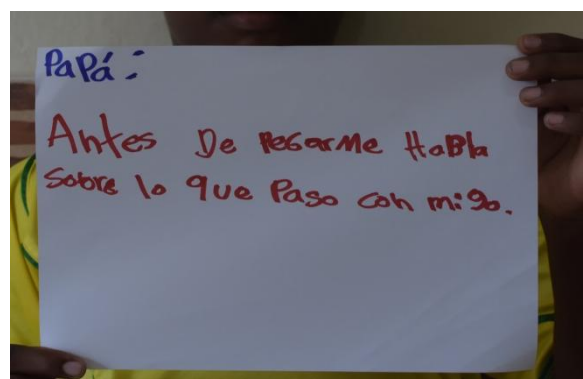 PaPá:
Antes De PeGarMe HaBla
Sobre lo que Paso con migo.